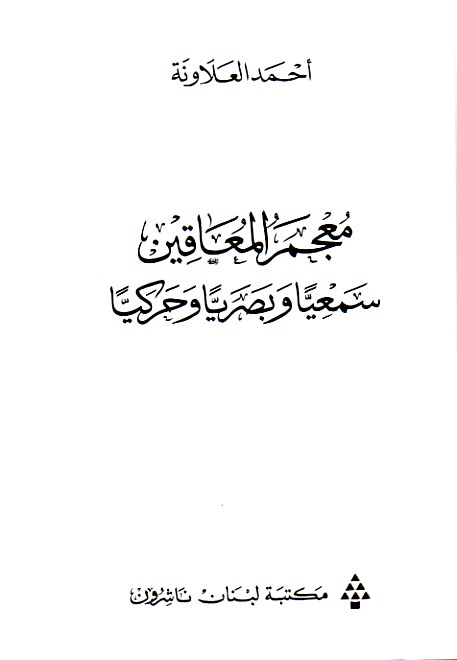 أحمد العلاونة
معجم المعاقين
سمعيًّا وبصريًّا وحركيًّا
مكتبة لبنان ناشرون